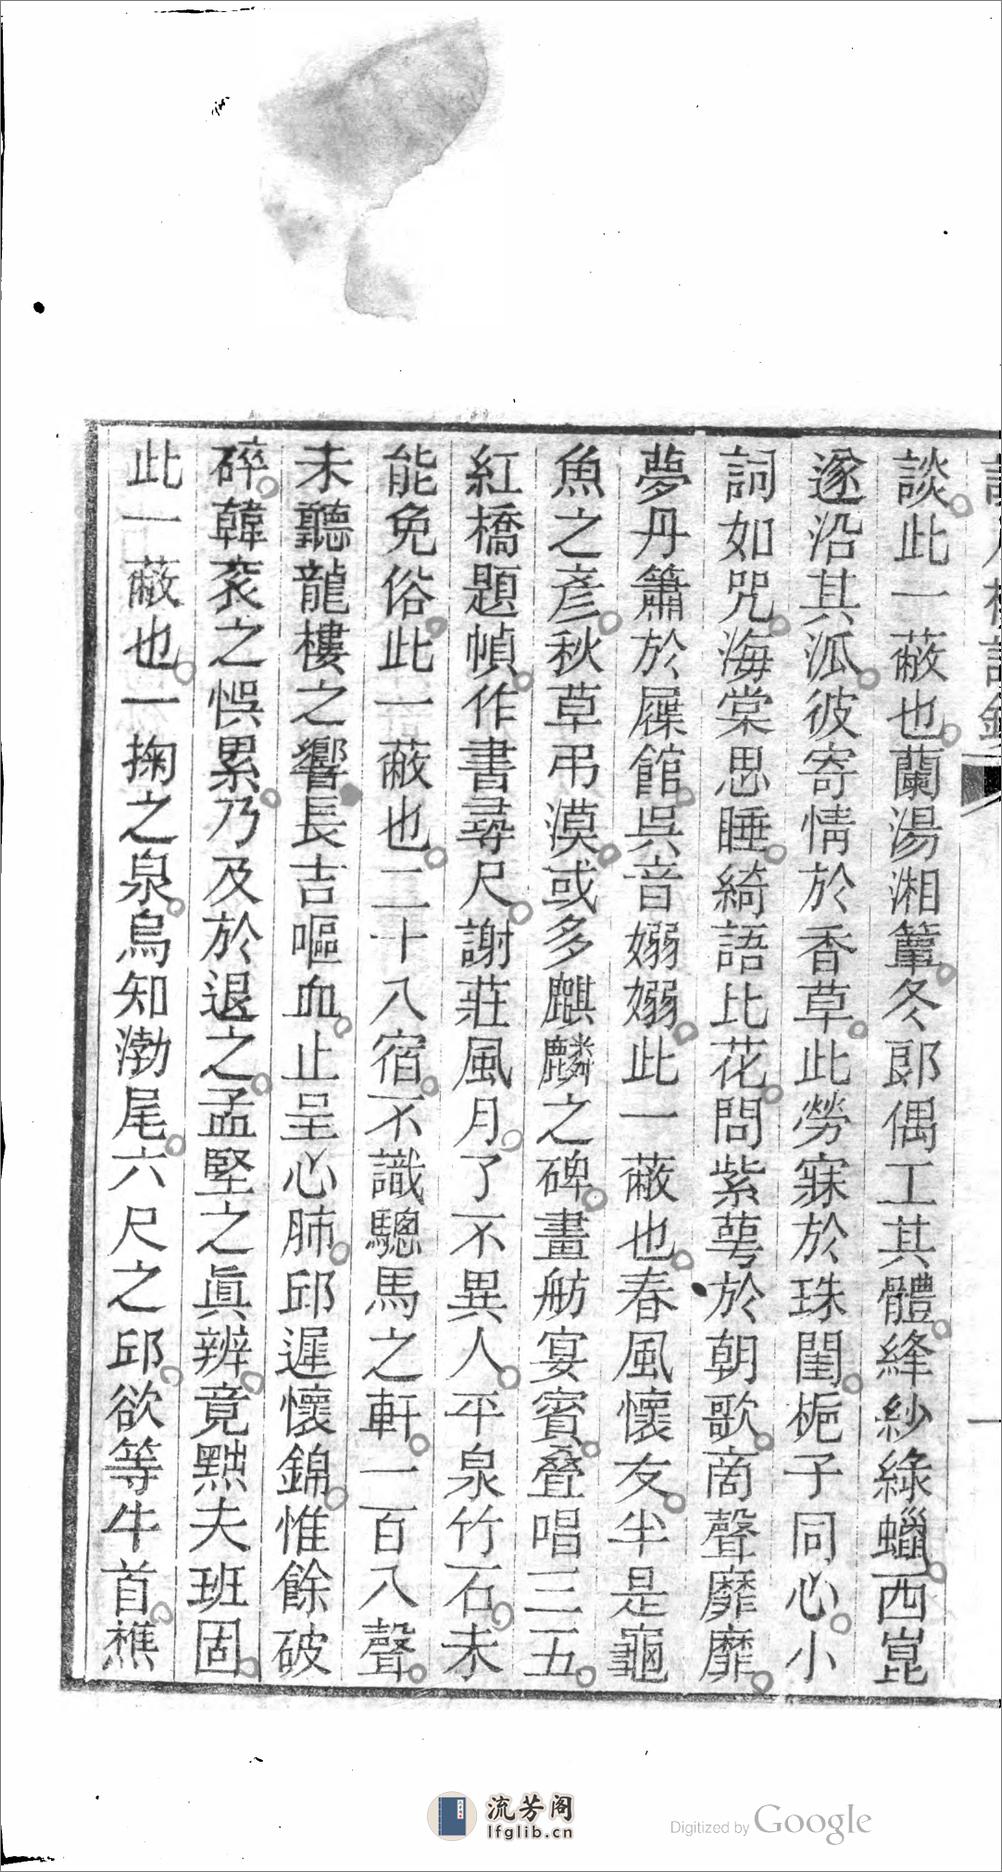 談此一蔽也蘭湯湘簟冬郎偶工其體絳紗綠蠟西崑
遂沿其泒彼寄情於香草此勞寐於珠閨梔子同心小
詞如咒海棠思睡綺語比花問紫萼於朝歌商聲靡靡
夢丹簫於屧館吳音嫋嫋此一蔽也春風懷友半是龜
魚之彥秋草弔漠或多麒麟之碑畫舫宴賓疊唱三五
紅橋題幀作書尋尺謝莊風月了不異人平泉竹石未
能免俗此一蔽也二十八宿不識驄馬之軒一百八聲
未聽龍樓之響長吉嘔血止呈心肺邱遲懷錦惟餘破
碎韓袞之悞累乃及於退之孟堅之眞辨竟黜夫班固
此一蔽也一掬之泉烏知渤尾六尺之邱欲等牛首樵
一
流芳阁
lfglib.cn
Digitized by Google